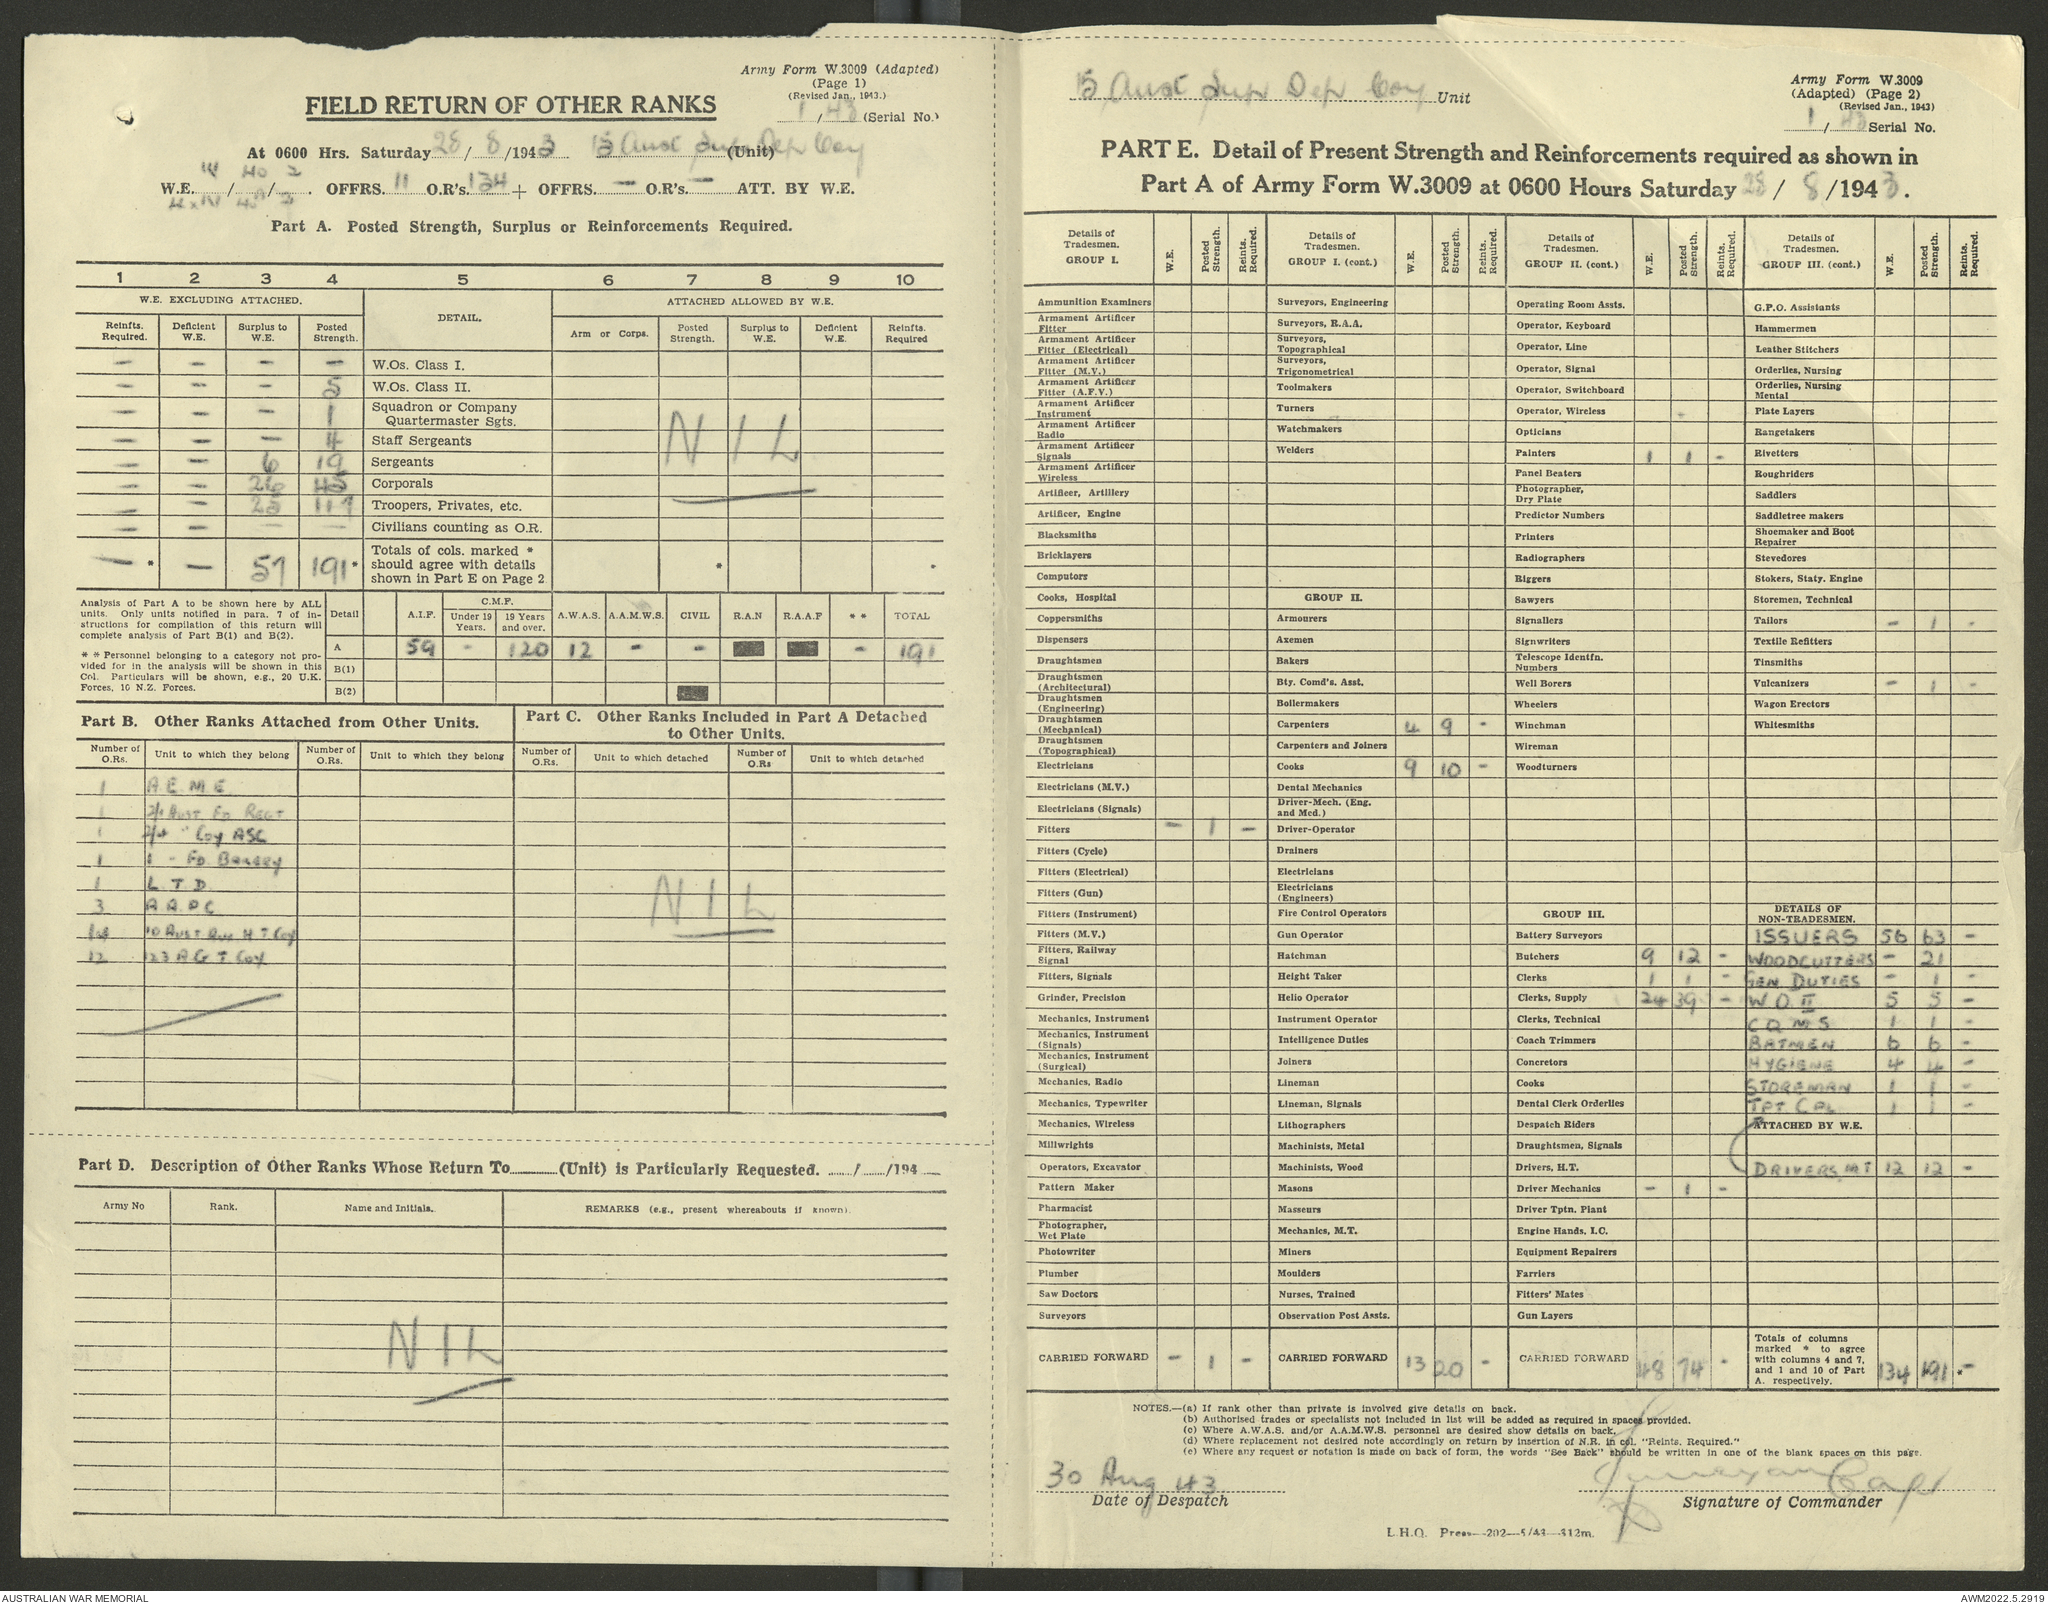 Army Form W.3009 (Adapted)
(Page 1)
(Revised Jan., 1943.)
FIELD RETURN OF OTHER RANKS
1 / 43 (Serial No.)
At 0600 Hrs. Saturday 28 / 8 /1943 15 Aust Sup Dep Coy (Unit)
W.E. / / . OFFRS. 11 O.R's. 134 + OFFRS. — O.R's. — ATT. BY W.E.
Part A. Posted Strength, Surplus or Reinforcements Required.
1 2 3 4 5 6 7 8 9 10
W.E. EXCLUDING ATTACHED. DETAIL. ATTACHED ALLOWED BY W.E.
Reinfts. Required. Deficient W.E. Surplus to W.E. Posted Strength. Arm or Corps. Posted Strength. Surplus to W.E. Deficient W.E. Reinfts. Required
— — — — W.Os. Class I.
— — — 5 W.Os. Class II.
— — — 1 Squadron or Company Quartermaster Sgts.
— — — 4 Staff Sergeants
— — 6 19 Sergeants
— — 26 45 Corporals
— — 25 117 Troopers, Privates, etc.
— — — — Civilians counting as O.R.
NIL
— * — 57 191 * Totals of cols. marked * should agree with details shown in Part E on Page 2 * *
Analysis of Part A to be shown here by ALL units. Only units notified in para. 7 of instructions for compilation of this return will complete analysis of Part B(1) and B(2).
* * Personnel belonging to a category not provided for in the analysis will be shown in this Col. Particulars will be shown, e.g., 20 U.K. Forces, 10 N.Z. Forces.
Detail A.I.F. C.M.F. Under 19 Years. 19 Years and over. A.W.A.S. A.A.M.W.S. CIVIL R.A.N R.A.A.F * * TOTAL
A 59 - 120 12 - - - 191
B(1)
B(2)
Part B. Other Ranks Attached from Other Units.
Part C. Other Ranks Included in Part A Detached to Other Units.
Number of O.Rs. Unit to which they belong Number of O.Rs. Unit to which they belong Number of O.Rs. Unit to which detached Number of O.Rs Unit to which detached
1 A E M E
1 2/1 Aust Fd Regt
1 2/4 " Coy ASC
1 1 - Fd Bakery
1 L T D
3 A A P C
10 Aust Aux H T Coy
12 123 A G T Coy
NIL
Part D. Description of Other Ranks Whose Return To (Unit) is Particularly Requested. / /194
Army No Rank. Name and Initials. REMARKS (e.g., present whereabouts if known).
NIL
15 Aust Sup Dep Coy Unit
Army Form W.3009
(Adapted) (Page 2)
(Revised Jan., 1943)
1 / 43 Serial No.
PART E. Detail of Present Strength and Reinforcements required as shown in
Part A of Army Form W.3009 at 0600 Hours Saturday 28 / 8 /1943.
Details of Tradesmen. GROUP I. W.E. Posted Strength. Reints. Required.
Ammunition Examiners
Armament Artificer Fitter
Armament Artificer Fitter (Electrical)
Armament Artificer Fitter (M.V.)
Armament Artificer Fitter (A.F.V.)
Armament Artificer Instrument
Armament Artificer Radio
Armament Artificer Signals
Armament Artificer Wireless
Artificer, Artillery
Artificer, Engine
Blacksmiths
Bricklayers
Computors
Cooks, Hospital
Coppersmiths
Dispensers
Draughtsmen
Draughtsmen (Architectural)
Draughtsmen (Engineering)
Draughtsmen (Mechanical)
Draughtsmen (Topographical)
Electricians
Electricians (M.V.)
Electricians (Signals)
Fitters — 1 —
Fitters (Cycle)
Fitters (Electrical)
Fitters (Gun)
Fitters (Instrument)
Fitters (M.V.)
Fitters, Railway Signal
Fitters, Signals
Grinder, Precision
Mechanics, Instrument
Mechanics, Instrument (Signals)
Mechanics, Instrument (Surgical)
Mechanics, Radio
Mechanics, Typewriter
Mechanics, Wireless
Millwrights
Operators, Excavator
Pattern Maker
Pharmacist
Photographer, Wet Plate
Photowriter
Plumber
Saw Doctors
Surveyors
CARRIED FORWARD — 1 —
Details of Tradesmen. GROUP I. (cont.) W.E. Posted Strength. Reints. Required.
Surveyors, Engineering
Surveyors, R.A.A.
Surveyors, Topographical
Surveyors, Trigonometrical
Toolmakers
Turners
Watchmakers
Welders
GROUP II.
Armourers
Axemen
Bakers
Bty. Comd's. Asst.
Boilermakers
Carpenters 4 9 -
Carpenters and Joiners
Cooks 9 10 -
Dental Mechanics
Driver-Mech. (Eng. and Mcd.)
Driver-Operator
Drainers
Electricians
Electricians (Engineers)
Fire Control Operators
Gun Operator
Hatchman
Height Taker
Helio Operator
Instrument Operator
Intelligence Duties
Joiners
Lineman
Lineman, Signals
Lithographers
Machinists, Metal
Machinists, Wood
Masons
Masseurs
Mechanics, M.T.
Miners
Moulders
Nurses, Trained
Observation Post Assts.
CARRIED FORWARD 13 20 -
Details of Tradesmen. GROUP II. (cont.) W.E. Posted Strength. Reints. Required.
Operating Room Assts.
Operator, Keyboard
Operator, Line
Operator, Signal
Operator, Switchboard
Operator, Wireless
Opticians
Painters 1 1 -
Panel Beaters
Photographer, Dry Plate
Predictor Numbers
Printers
Radiographers
Riggers
Sawyers
Signallers
Signwriters
Telescope Identfn. Numbers
Well Borers
Wheelers
Winchman
Wireman
Woodturners
GROUP III.
Battery Surveyors
Butchers 9 12 -
Clerks 1 1 -
Clerks, Supply 24 39 -
Clerks, Technical
Coach Trimmers
Concretors
Cooks
Dental Clerk Orderlies
Despatch Riders
Draughtsmen, Signals
Drivers, H.T.
Driver Mechanics - 1 -
Driver Tptn. Plant
Engine Hands, I.C.
Equipment Repairers
Farriers
Fitters' Mates
Gun Layers
CARRIED FORWARD 48 74 -
Details of Tradesmen. GROUP III. (cont.) W.E. Posted Strength. Reints. Required.
G.P.O. Assistants
Hammermen
Leather Stitchers
Orderlies, Nursing
Orderlies, Nursing Mental
Plate Layers
Rangetakers
Rivetters
Roughriders
Saddlers
Saddletree makers
Shoemaker and Boot Repairer
Stevedores
Stokers, Staty. Engine
Storemen, Technical
Tailors - 1 -
Textile Refitters
Tinsmiths
Vulcanizers - 1 -
Wagon Erectors
Whitesmiths
DETAILS OF NON-TRADESMEN.
ISSUERS 56 63 -
WOODCUTTERS - 21
GEN DUTIES - 1 -
W O II 5 5 -
C Q M S 1 1 -
BATMEN 6 6 -
HYGIENE 4 4 -
STOREMAN 1 1 -
TPT CPL 1 1 -
ATTACHED BY W.E.
DRIVERS MT 12 12 -
Totals of columns marked * to agree with columns 4 and 7, and 1 and 10 of Part A. respectively. 134 191 * -
NOTES.—(a) If rank other than private is involved give details on back.
(b) Authorised trades or specialists not included in list will be added as required in spaces provided.
(c) Where A.W.A.S. and/or A.A.M.W.S. personnel are desired show details on back.
(d) Where replacement not desired note accordingly on return by insertion of N.R. in col. "Reints. Required."
(e) Where any request or notation is made on back of form, the words "See Back" should be written in one of the blank spaces on this page.
30 Aug 43
Date of Despatch
Capt
Signature of Commander
L.H.Q. Press—202—5/43—312m.
AUSTRALIAN WAR MEMORIAL
AWM2022.5.2919